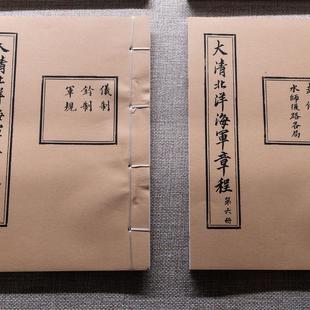 大清北洋海軍章程 第六冊
水師後路各局
大清北洋海軍
儀制
鈐制
軍規